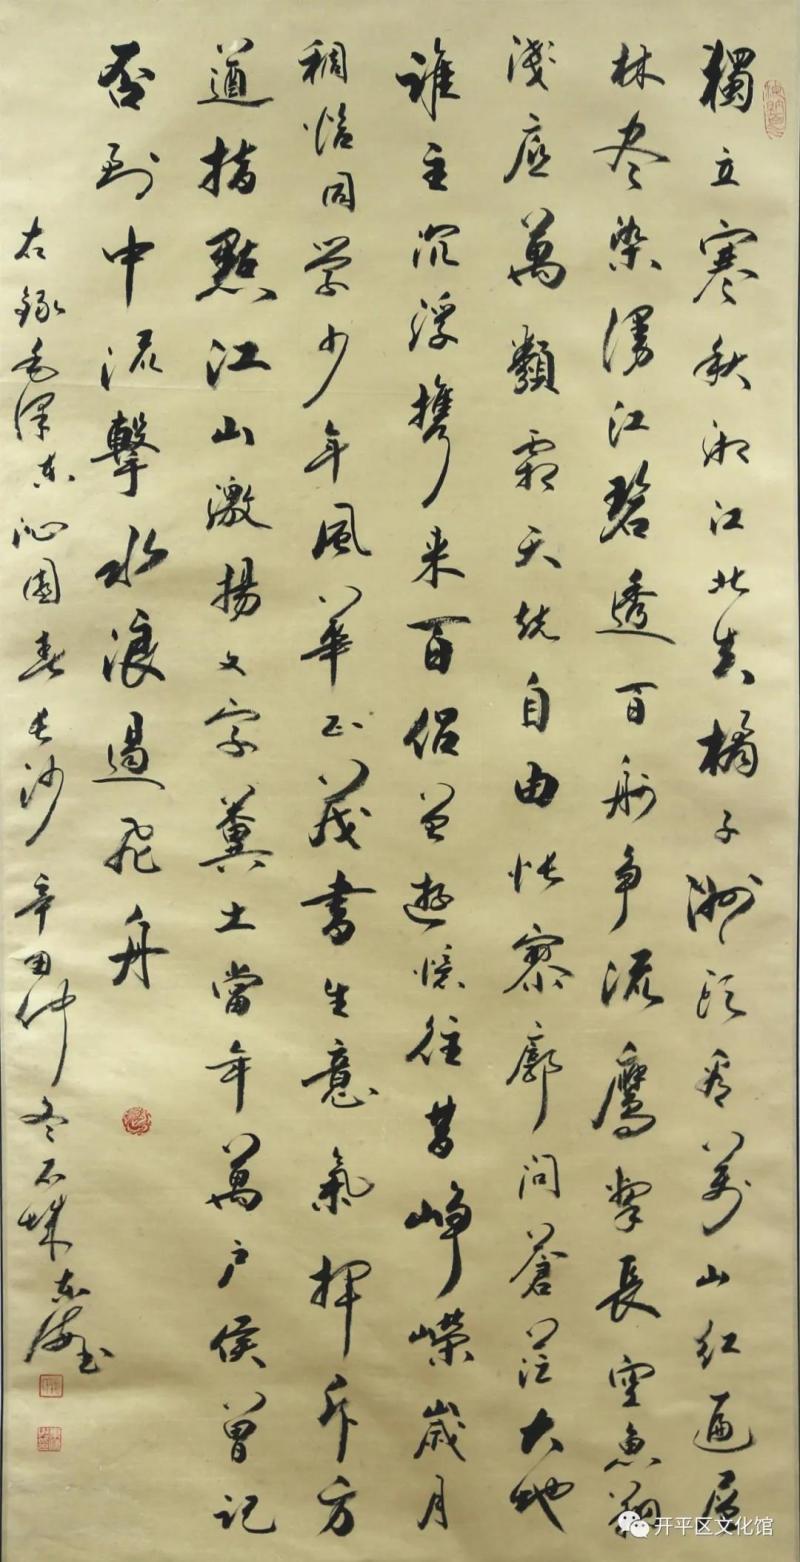 獨立寒秋湘江北去橘子洲头看萬山红遍层
林尽染漫江碧透百舸争流鷹擊長空魚翔
淺底萬類霜天競自由悵寥廓問蒼茫大地
誰主沉浮携来百侣曾遊憶往昔崢嶸歲月
稠恰同学少年風華正茂書生意氣揮斥方
遒指點江山激揚文字糞土當年萬户侯曾记
否到中流擊水浪遏飛舟
右錄毛泽东沁園春长沙 辛丑仲冬石城东海书
开平区文化馆